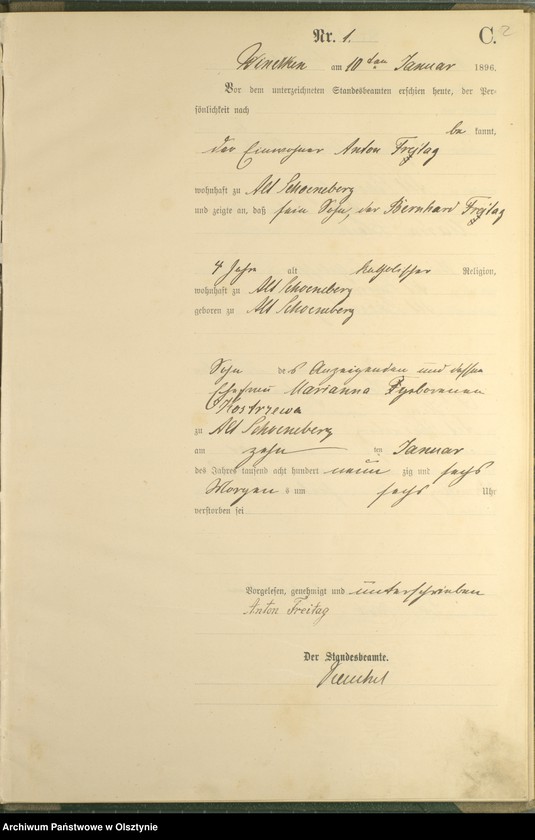 Nr. 1.
C.
2
am 10ten Januar 1896.
Vor dem unterzeichneten Standesbeamten erschien heute, der Per-
sönlichkeit nach
be kannt,
der Einwohner Anton Freitag
wohnhaft zu Alt Schoeneberg
und zeigte an, daß sein Sohn, der Bernhard Freitag
4 Jahr alt katholischer Religion,
wohnhaft zu Alt Schoeneberg
geboren zu Alt Schoeneberg
Sohn des Anzeigenden und dessen
Ehefrau Marianna geborenen
Kostrzewa
zu Alt Schoeneberg
am zehn ten Januar
des Jahres tausend acht hundert neun zig und sechs
Morgen s um sechs Uhr
verstorben sei
Vorgelesen, genehmigt und unterschrieben
Anton Freitag
Der Standesbeamte.
Archiwum Państwowe w Olsztynie